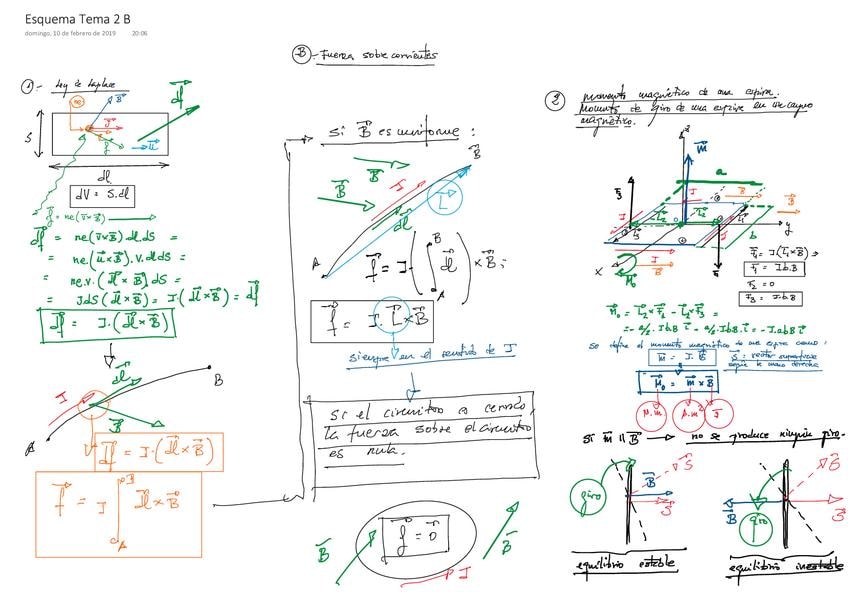 Esquema Tema 2 B
domingo, 10 de febrero de 2019 20:06
B - Fuerza sobre corrientes
1 - Ley de Laplace
S
dl
dV = S.dl
f = ne(v×B)
df = ne(v×B) dl.dS =
= ne(u×B).v.dl dS =
= ne.v.(dl×B) dS =
= JdS(dl×B) = I.(dl×B) = df
df = I.(dl×B)
I
dl
B
A
B
df = I.(dl×B)
f = I ∫ dl×B
B
A
si B es uniforme:
B
B
I
dl
L
A
B
f = I.(∫ dl)×B =
B
A
f = I.L×B
siempre en el sentido de I
Si el circuito es cerrado,
la fuerza sobre el circuito
es nula.
f = 0
B
B
I
2
momento magnético de una espira.
Momento de giro de una espira en un campo
magnético.
z
m
a
F3
I
B
B
y
b
x
M0
I
B
F1 = I(L1×B) ⇒
F1 = I.b.B
F2 = 0
F3 = I.b.B
= -a/2.I.b.B i - a/2.I.b.B.i = -I.a.b.B i
Se define el momento magnético de una espira como:
m = I.S
S = vector superficie
según la mano derecha
M0 = m×B
N.m
A.m²
T
Si m || B → no se produce ningún giro.
giro
B
S
S
equilibrio estable
B
giro
S
S
equilibrio inestable